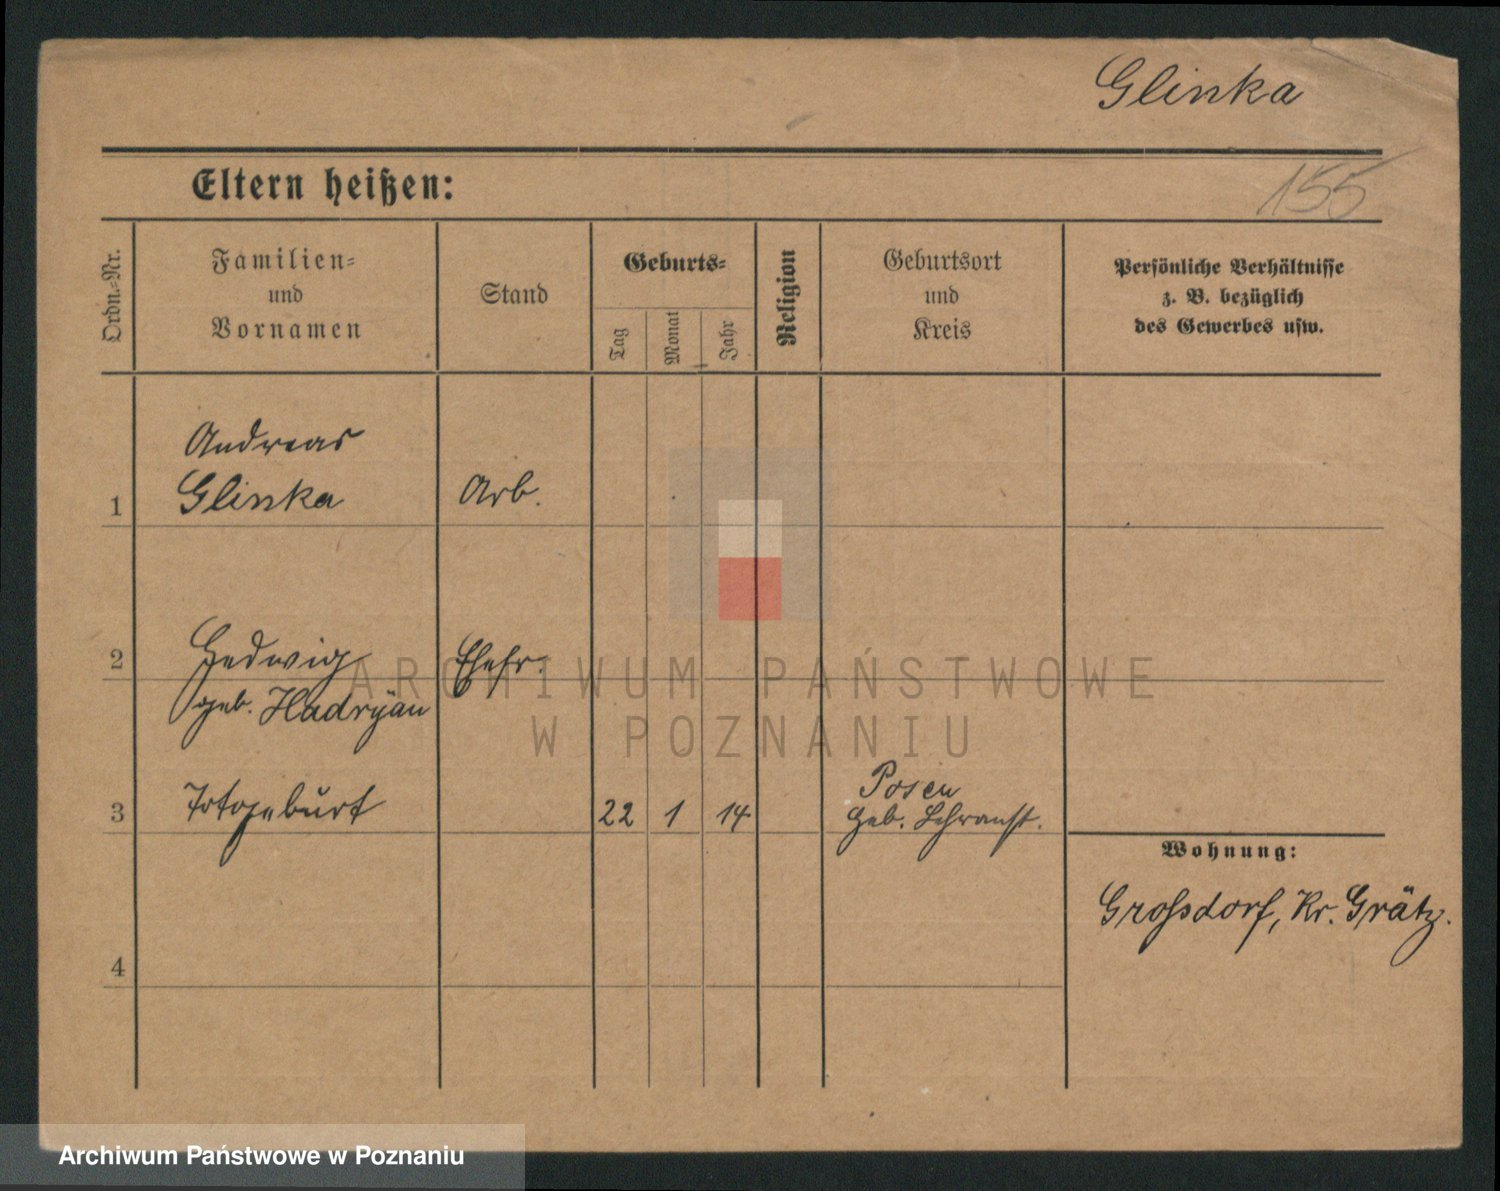 Glinka
155
Eltern heißen:
Ordn.=Nr.
Familien=
und
Vornamen
Stand
Geburts=
Tag
Monat
Jahr
Religion
Geburtsort
und
Kreis
Persönliche Verhältnisse
z. B. bezüglich
des Gewerbes usw.
Andreas
1 Glinka Arb.
2 Hedwig Ehefr.
geb. Hadryan
Posen
3 Totgeburt 22 1 14 Heb. Lehranst.
Wohnung:
Grossdorf, Kr. Grätz.
4
ARCHIWUM PAŃSTWOWE
W POZNANIU
Archiwum Państwowe w Poznaniu